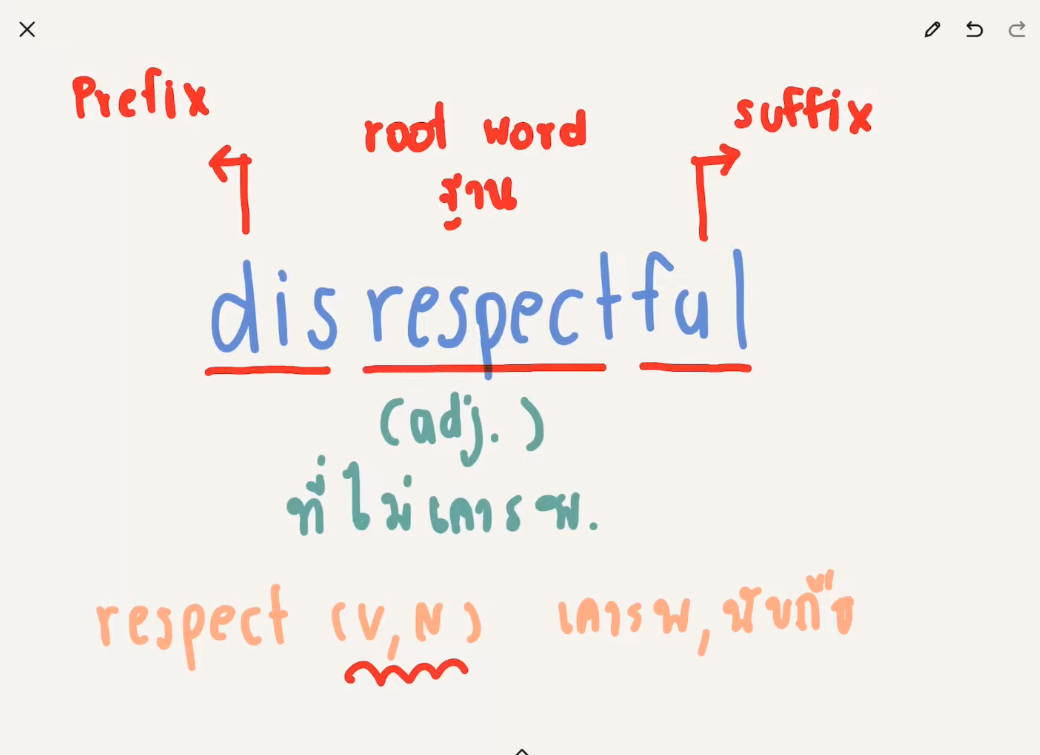 Prefix
root word
suffix
ฐาน
disrespectful
(adj.)
ที่ไม่เคารพ.
respect (V,N) เคารพ, นับถือ